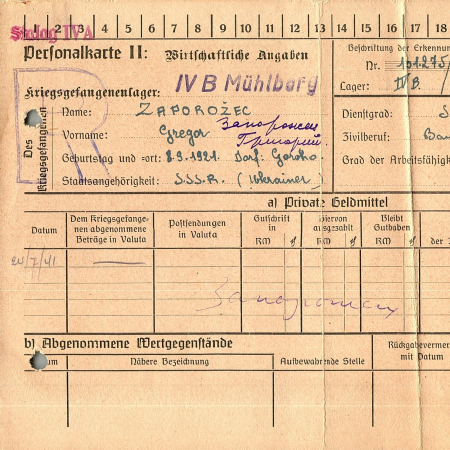 1 2 3 4 5 6 7 8 9 10 11 12 13 14 15 16 17 18
Stalag IV A
Personalkarte II: Wirtschaftliche Angaben
Beschriftung der Erkennun
Nr. 151275/
Lager: IV B.
Kriegsgefangenenlager: IV B Mühlberg
Des Kriegsgefangenen
R
Name: ZAPOROŽEC Запорожец
Vorname: Gregor Григорий
Geburtstag und -ort: 8.9.1921. Dorf:
Staatsangehörigkeit: SSSR. (Ukrainer)
Dienstgrad: S
Zivilberuf: Bau
Grad der Arbeitsfähigk
a) Private Geldmittel
Datum
Dem Kriegsgefange-
nen abgenommene
Beträge in Valuta
Postsendungen
in Valuta
Gutschrift
in
RM ₰
Hiervon
ausgezahlt
RM ₰
Bleibt
Guthaben
RM ₰
der
24/7/41 —
Запорожец
b) Abgenommene Wertgegenstände
Datum
Nähere Bezeichnung
Aufbewahrende Stelle
Rückgabevermer
mit Datum